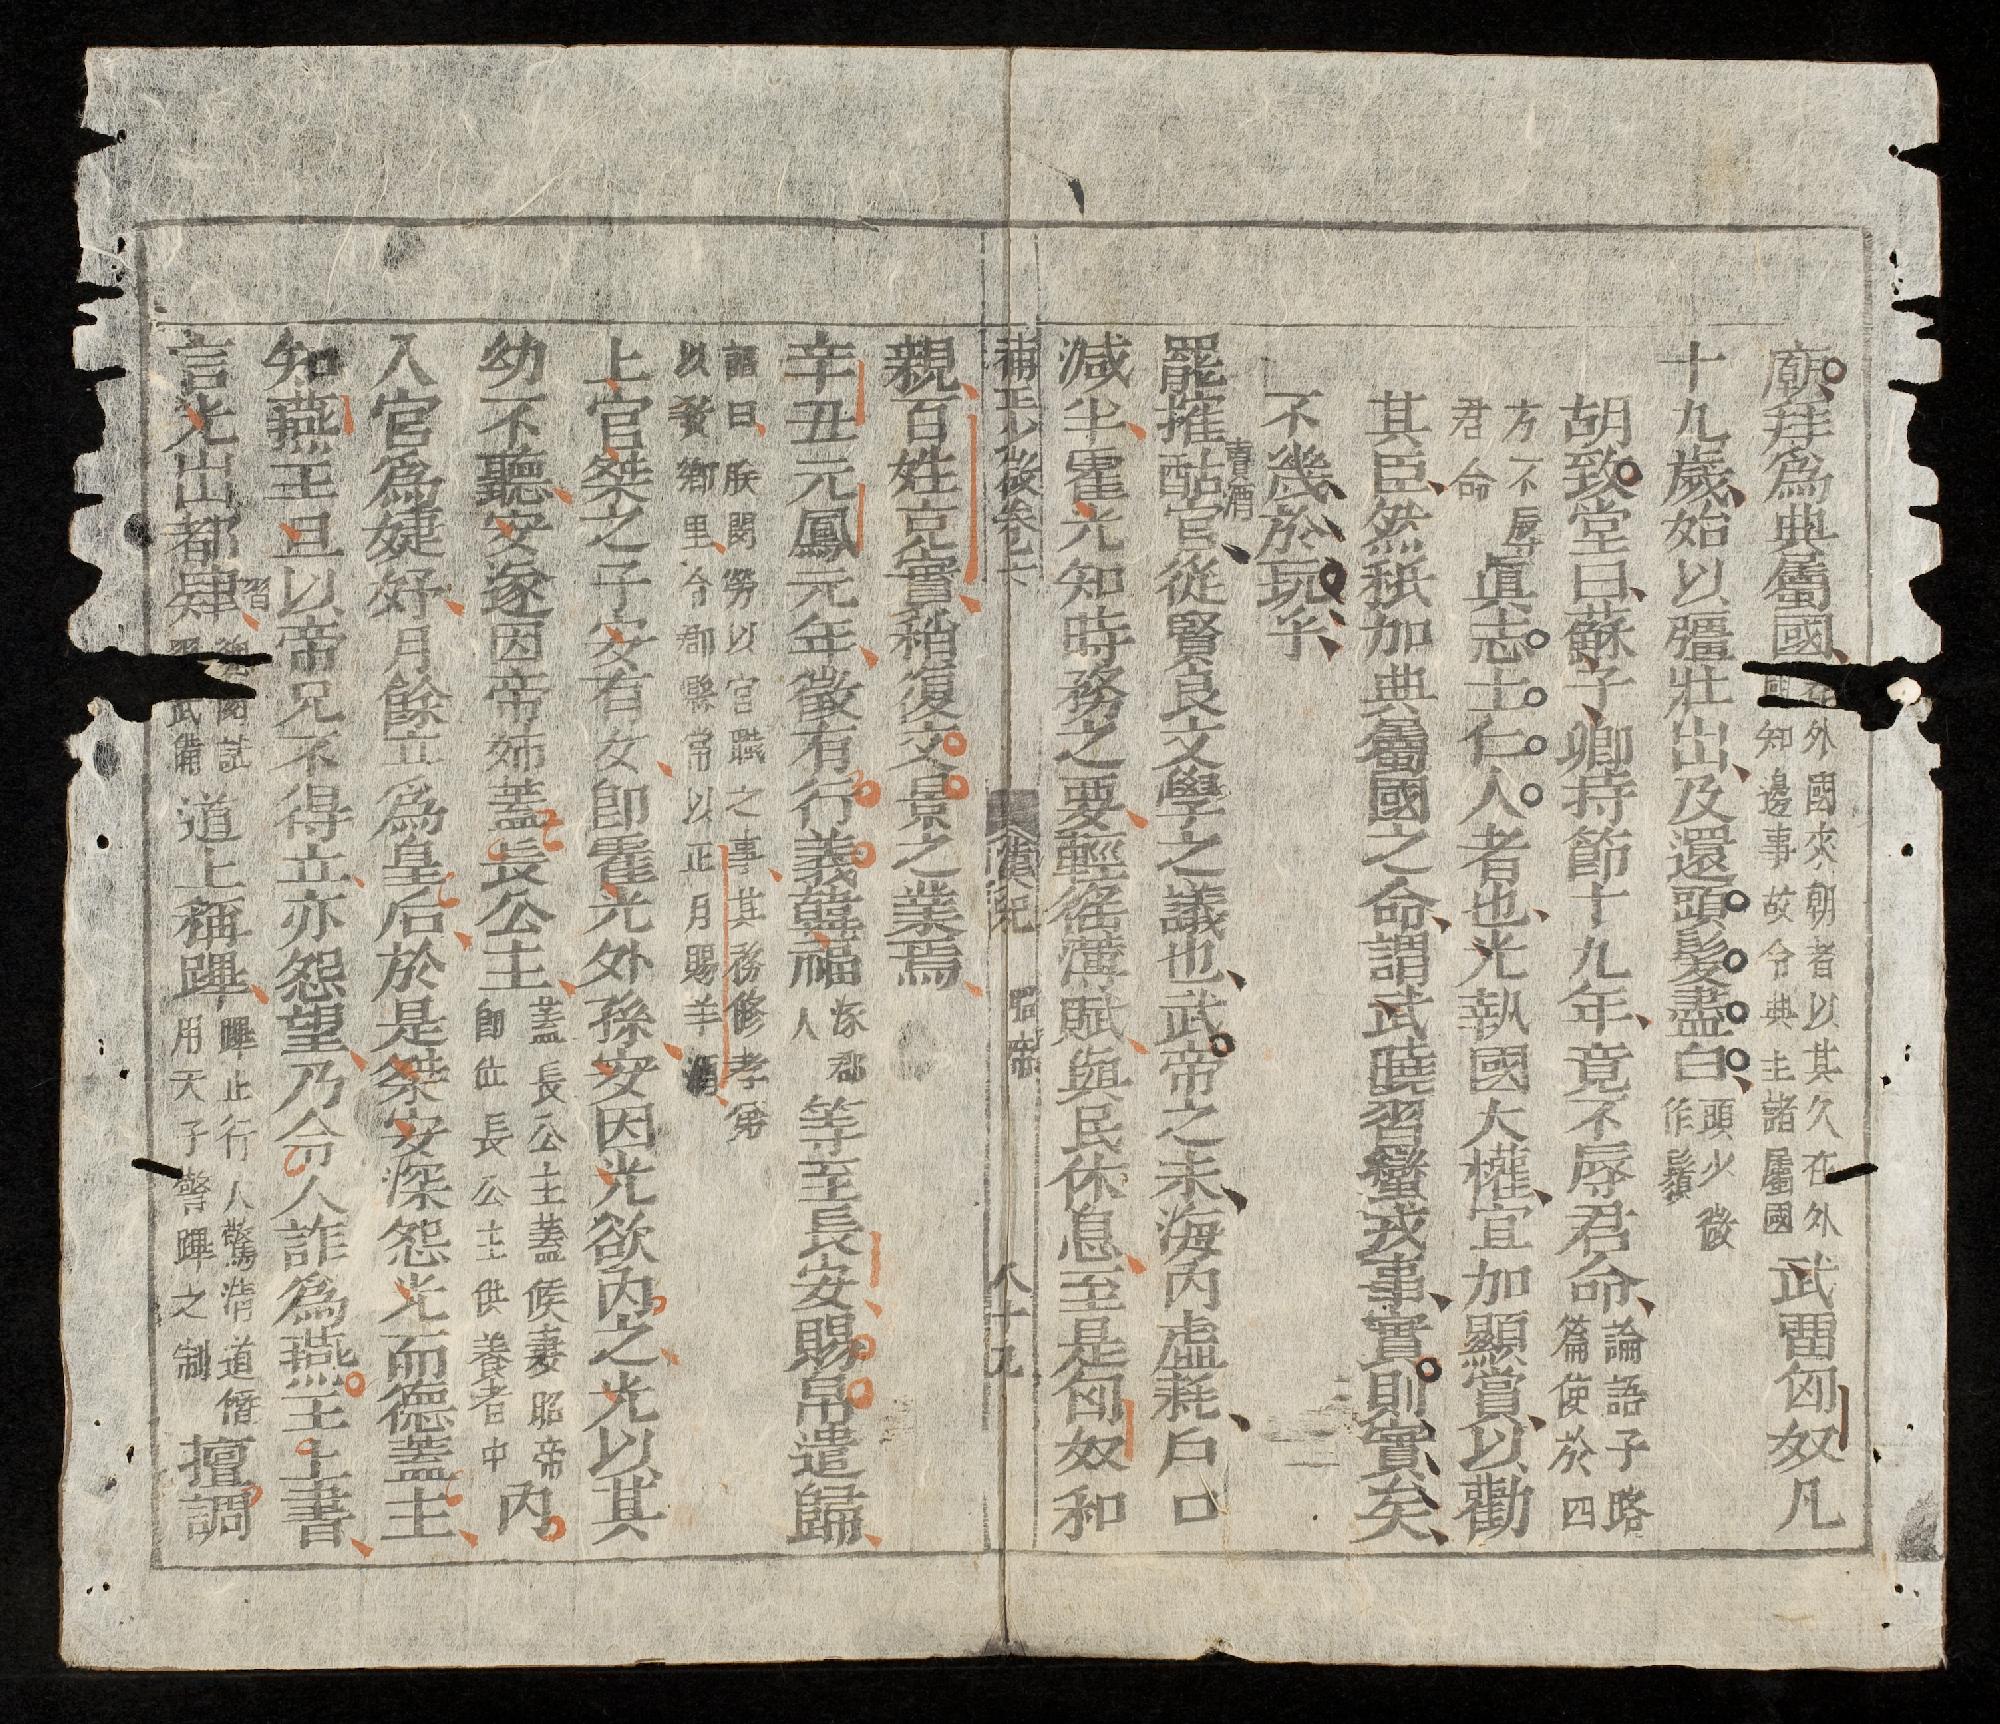 廟拜爲典屬國外國來朝者以其久在外知邊事故令典主諸屬國武留匈奴凡
十九歲始以彊壯出及還頭髮盡白頭少髮作鬚
胡致堂曰蘇子卿持節十九年竟不辱君命論語子路篇使於四
方不辱君命眞志士仁人者也光執國大權宜加顯賞以勸
其臣然秪加典屬國之命謂武曉習蠻戎事實則實矣
不幾於玩乎
罷搉酤官賣酒從賢良文學之議也武帝之末海內虛耗戶口
減半霍光知時務之要輕徭薄賦與民休息至是匈奴和
補正少微卷七 漢紀 昭帝 八十九
親百姓克實稍復文景之業焉
辛丑元鳳元年徵有行義韓福涿郡人等至長安賜帛遣歸
詔曰朕閔勞以官職之事其務修孝弟以敎鄉里令郡縣常以正月賜羊酒
上官桀之子安有女卽霍光外孫安因光欲內之光以其
幼不聽安遂因帝姉蓋長公主蓋長公主蓋侯妻昭帝卽位長公主供養者中內
入宮爲婕妤月餘立爲皇后於是桀安深怨光而德蓋主
知燕王旦以帝兄不得立亦怨望乃令人詐爲燕王上書
言光出都肄習武備道上稱蹕蹕止行人驚淸道僭用天子警蹕之制擅調